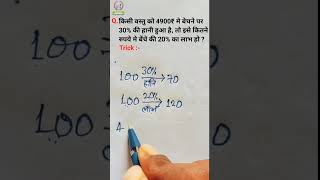 Q. किसी वस्तु को 4900₹ मे बेचने पर
30% की हानी हुआ है, तो इसे कितने
रूपये मे बेंचे की 20% का लाभ हो ?
Trick :-
100 30% हानि → 70
100 20% लाभ → 120
4